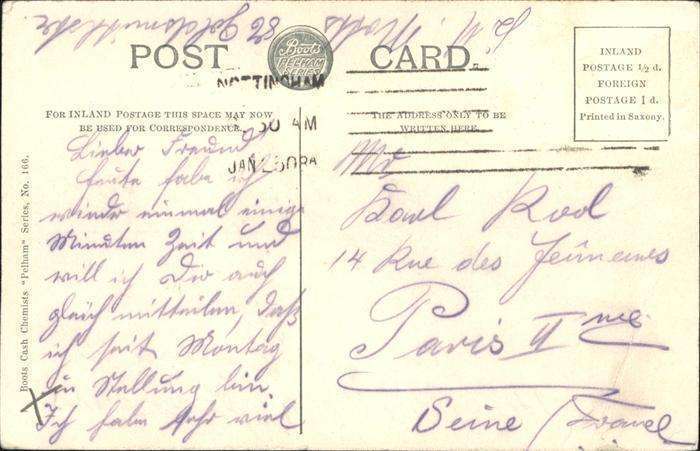 POST CARD.
Boots
PELHAM
SERIES
NOTTINGHAM
30 AM
JAN 25 09
INLAND
POSTAGE ½ d.
FOREIGN
POSTAGE 1 d.
Printed in Saxony.
FOR INLAND POSTAGE THIS SPACE MAY NOW
BE USED FOR CORRESPONDENCE.
THE ADDRESS ONLY TO BE
WRITTEN HERE.
Boots Cash Chemists "Pelham" Series, No. 166.
Lieber Freund
Heute habe ich
wieder einmal einige
Minuten Zeit und
will ich Dir auch
gleich mitteilen, daß
ich seit Montag
in Stellung bin
Ich habe sehr viel
Mr
Karl Rod
14 Rue des Jeûneurs
Paris II me
Seine (France